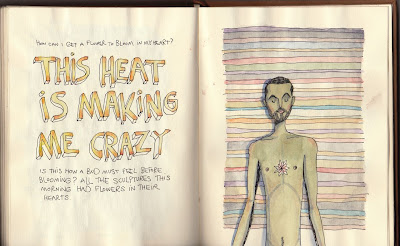 HOW CAN I GET A FLOWER TO BLOOM IN MY HEART?
THIS HEAT
IS MAKING
ME CRAZY
IS THIS HOW A BUD MUST FEEL BEFORE
BLOOMING? ALL THE SCULPTURES THIS
MORNING HAD FLOWERS IN THEIR
HEARTS